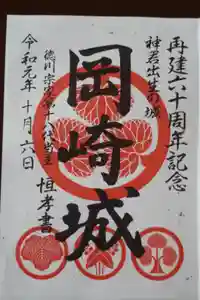 再建六十周年記念
神君出生の城
岡崎城
徳川宗家第十八代当主
恒孝書
令和元年十月六日